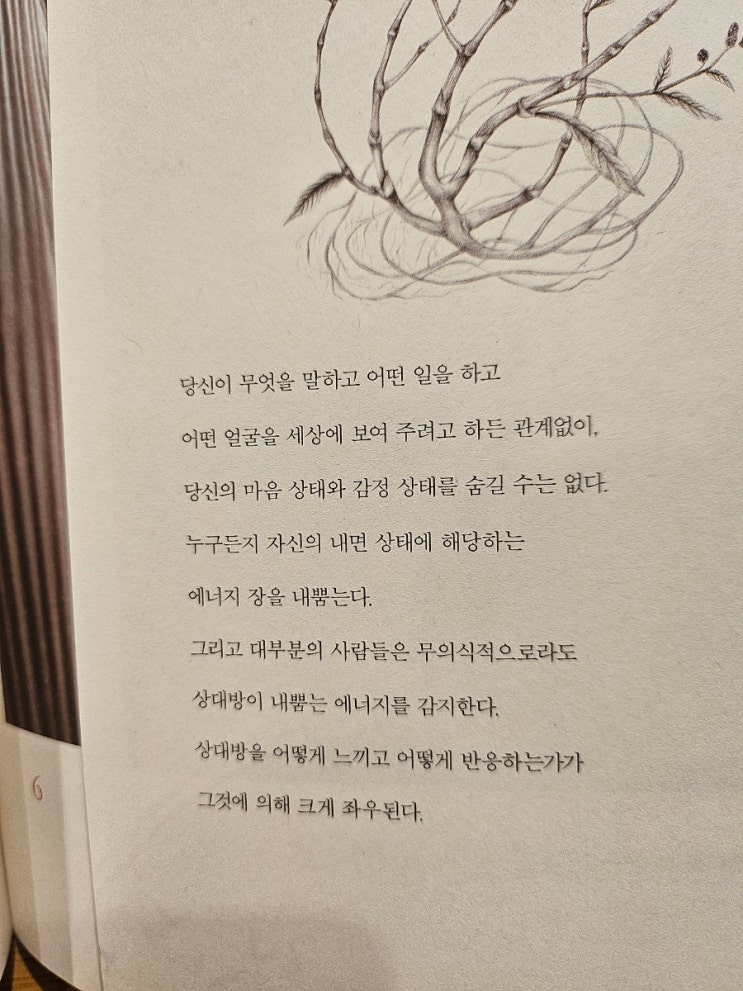 당신이 무엇을 말하고 어떤 일을 하고
어떤 얼굴을 세상에 보여 주려고 하든 관계없이,
당신의 마음 상태와 감정 상태를 숨길 수는 없다.
누구든지 자신의 내면 상태에 해당하는
에너지 장을 내뿜는다.
그리고 대부분의 사람들은 무의식적으로라도
상대방이 내뿜는 에너지를 감지한다.
상대방을 어떻게 느끼고 어떻게 반응하는가가
그것에 의해 크게 좌우된다.
6